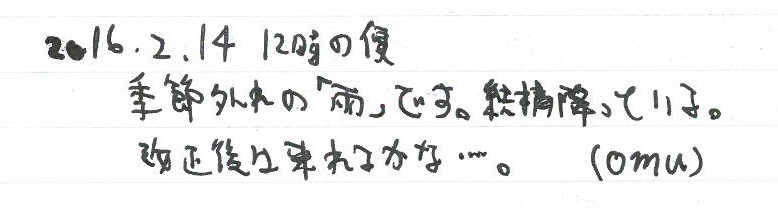 2016.2.14 12時の便
季節外れの「雨」です。結構降っている。
改正後は乗れるかな…。 (omu)